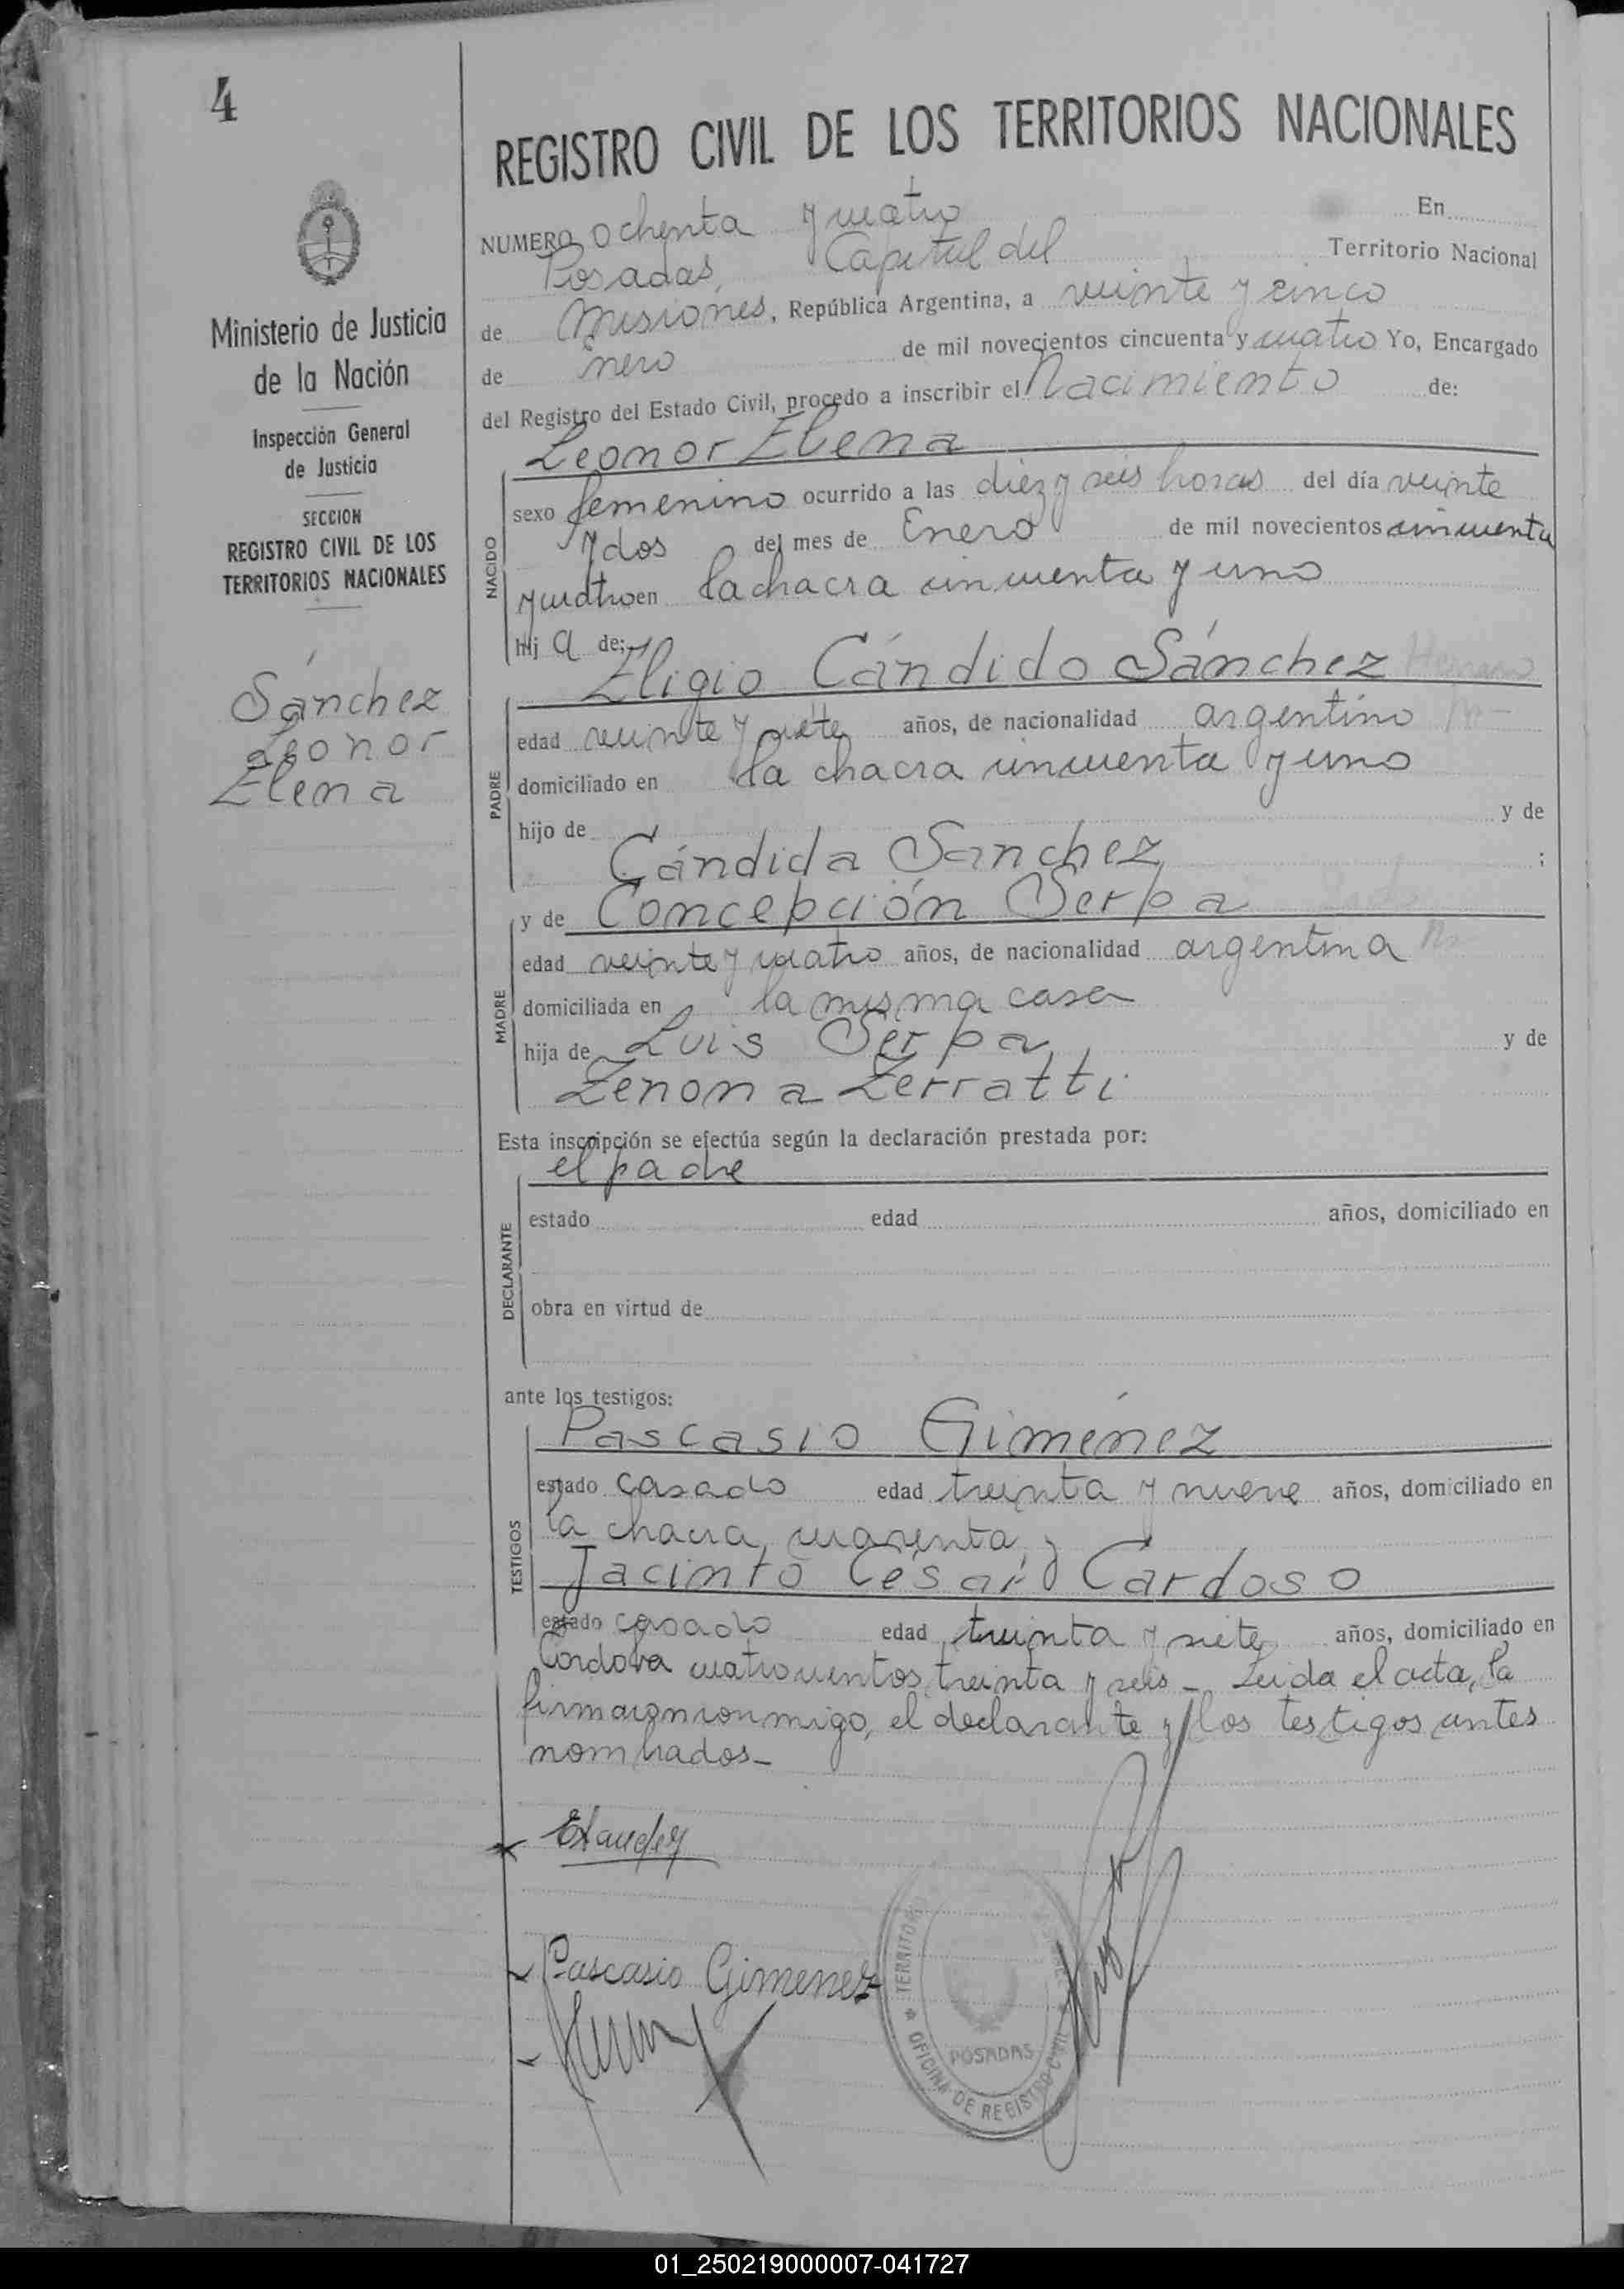 4
REGISTRO CIVIL DE LOS TERRITORIOS NACIONALES
Ministerio de Justicia
de la Nación
Inspección General
de Justicia
SECCION
REGISTRO CIVIL DE LOS
TERRITORIOS NACIONALES
Sánchez
Leonor
Elena
NUMERO ochenta y cuatro En
Posadas, Capital del Territorio Nacional
de Misiones, República Argentina, a veinte y cinco
de Enero de mil novecientos cincuenta y cuatro Yo, Encargado
del Registro del Estado Civil, procedo a inscribir el Nacimiento de:
Leonor Elena
NACIDO
sexo femenino ocurrido a las diez y seis horas del día veinte
y dos del mes de Enero de mil novecientos cincuenta
y cuatro en la chacra cincuenta y uno
hij a de:
Eligio Cándido Sánchez
PADRE
edad veinte y siete años, de nacionalidad argentino
domiciliado en la chacra cincuenta y uno
hijo de y de
Cándida Sanchez ;
y de Concepción Serpa
MADRE
edad veinte y cuatro años, de nacionalidad argentina
domiciliada en la misma casa
hija de Luis Serpa y de
Zenona Zerratti
Esta inscripción se efectúa según la declaración prestada por:
el padre
DECLARANTE
estado edad años, domiciliado en
obra en virtud de
ante los testigos:
Pascasio Giménez
TESTIGOS
estado casado edad treinta y nueve años, domiciliado en
la chacra cuarenta, y
Jacinto César Cardoso
estado casado edad treinta y siete años, domiciliado en
Córdova cuatrocientos treinta y seis - Leida el acta, la
firmaron conmigo, el declarante y los testigos antes
nombrados-
Pascasio Gimenez
TERRITORI
POSADAS
OFICINA DE REGISTRO CIVIL
01_250219000007-041727